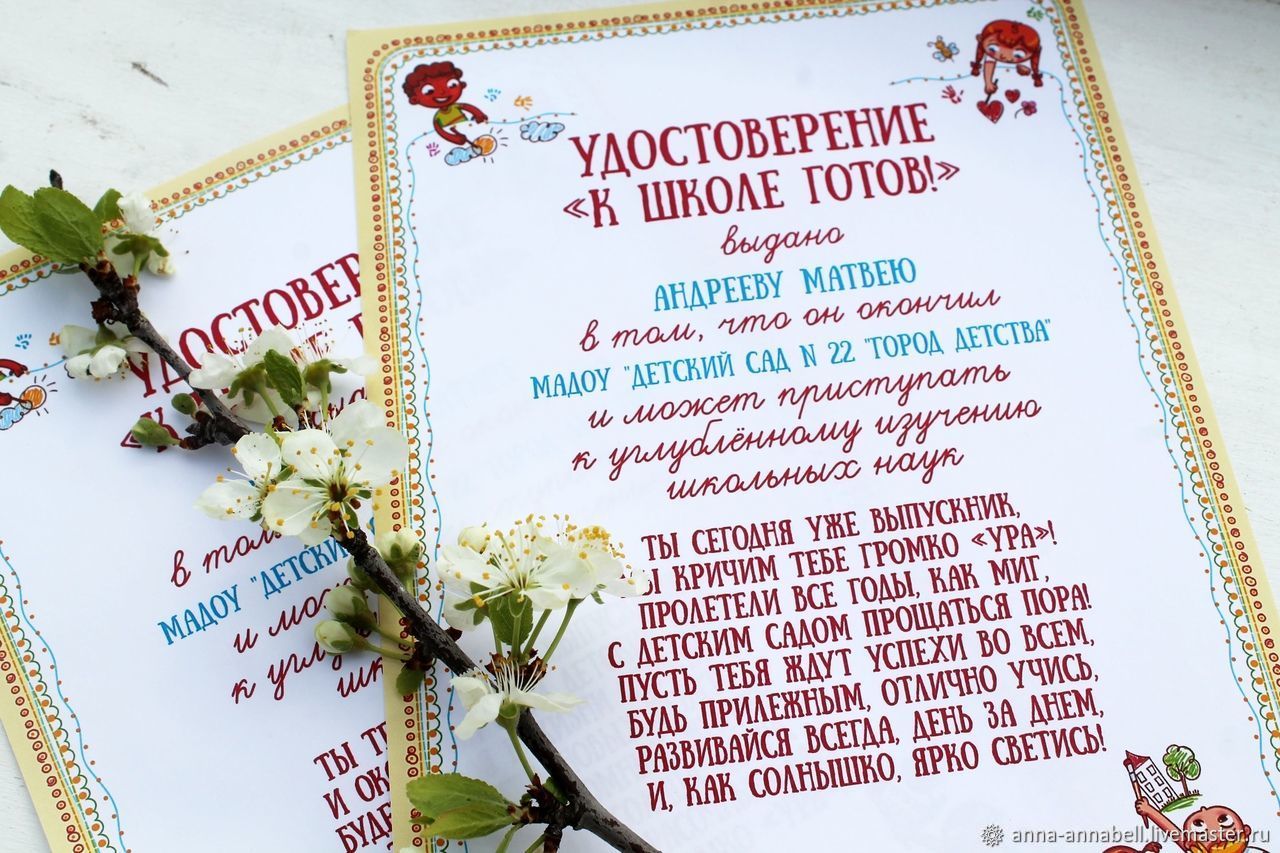 УДОСТОВЕРЕНИЕ
«К ШКОЛЕ ГОТОВ!»
выдано
АНДРЕЕВУ МАТВЕЮ
в том, что он окончил
МАДОУ "ДЕТСКИЙ САД N 22 "ГОРОД ДЕТСТВА"
и может приступать
к углублённому изучению
школьных наук
ТЫ СЕГОДНЯ УЖЕ ВЫПУСКНИК,
КРИЧИМ ТЕБЕ ГРОМКО «УРА»!
ПРОЛЕТЕЛИ ВСЕ ГОДЫ, КАК МИГ,
С ДЕТСКИМ САДОМ ПРОЩАТЬСЯ ПОРА!
ПУСТЬ ТЕБЯ ЖДУТ УСПЕХИ ВО ВСЕМ,
БУДЬ ПРИЛЕЖНЫМ, ОТЛИЧНО УЧИСЬ,
РАЗВИВАЙСЯ ВСЕГДА, ДЕНЬ ЗА ДНЕМ,
И, КАК СОЛНЫШКО, ЯРКО СВЕТИСЬ!
УДОСТОВЕР
«К
в том
МАДОУ "ДЕТСКИ
и мо
к угл
шк
ТЫ
И
БУДЕ
anna-annabell.livemaster.ru